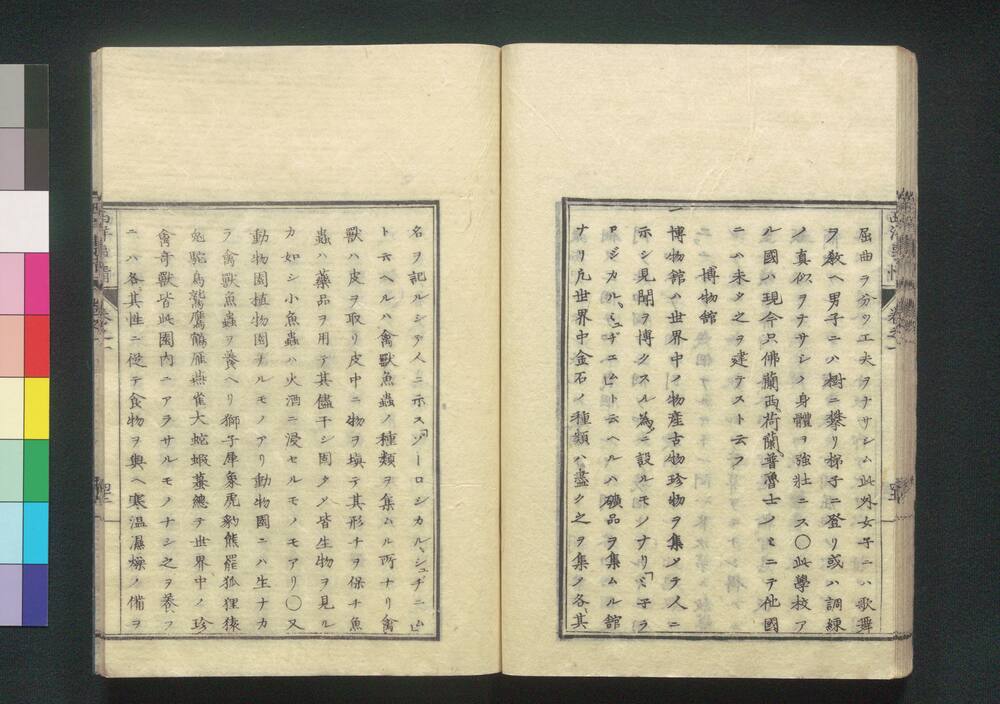 屈曲ヲ分ツ工夫ヲナサシム此外女子ニハ歌舞
ヲ敎ヘ男子ニハ樹ニ攀リ梯子ニ登リ或ハ調練
ノ真似ヲナサシメ身體ヲ強壮ニス〇此學校ア
ル國ハ現今只佛蘭西荷蘭普魯士ノミニテ他國
ニハ未タ之ヲ建テスト云フ
博物館
一博物館ハ世界中ノ物産古物珍物ヲ集メテ人ニ
示シ見聞ヲ博クスル為ニ設ルモノナリ「ミ子ラ
ロジカル、ミュヂエム」ト云ヘルハ礦品ヲ集ムル館
ナリ凡世界中金石ノ種類ハ盡ク之ヲ集メ各其
名ヲ記ルシテ人ニ示ス「ゾーロジカル、ミュヂエム」
ト云ヘルハ禽獸魚蟲ノ種類ヲ集ムル所ナリ禽
獸ハ皮ヲ取リ皮中ニ物ヲ塡テ其形チヲ保チ魚
蟲ハ藥品ヲ用テ其儘干シ固タメ皆生物ヲ見ル
カ如シ小魚蟲ハ火酒ニ浸セルモノモアリ〇又
動物園植物園ナルモノアリ動物園ニハ生ナカ
ラ禽獸魚蟲ヲ養ヘリ獅子犀象虎豹熊羆狐狸猿
兎駝鳥鷲鷹鶴雁燕雀大蛇蝦蟇總テ世界中ノ珍
禽奇獸皆此園内ニアラサルモノナシ之ヲ養フ
ニハ各其性ニ從テ食物ヲ與ヘ寒温濕燥ノ備ヲ